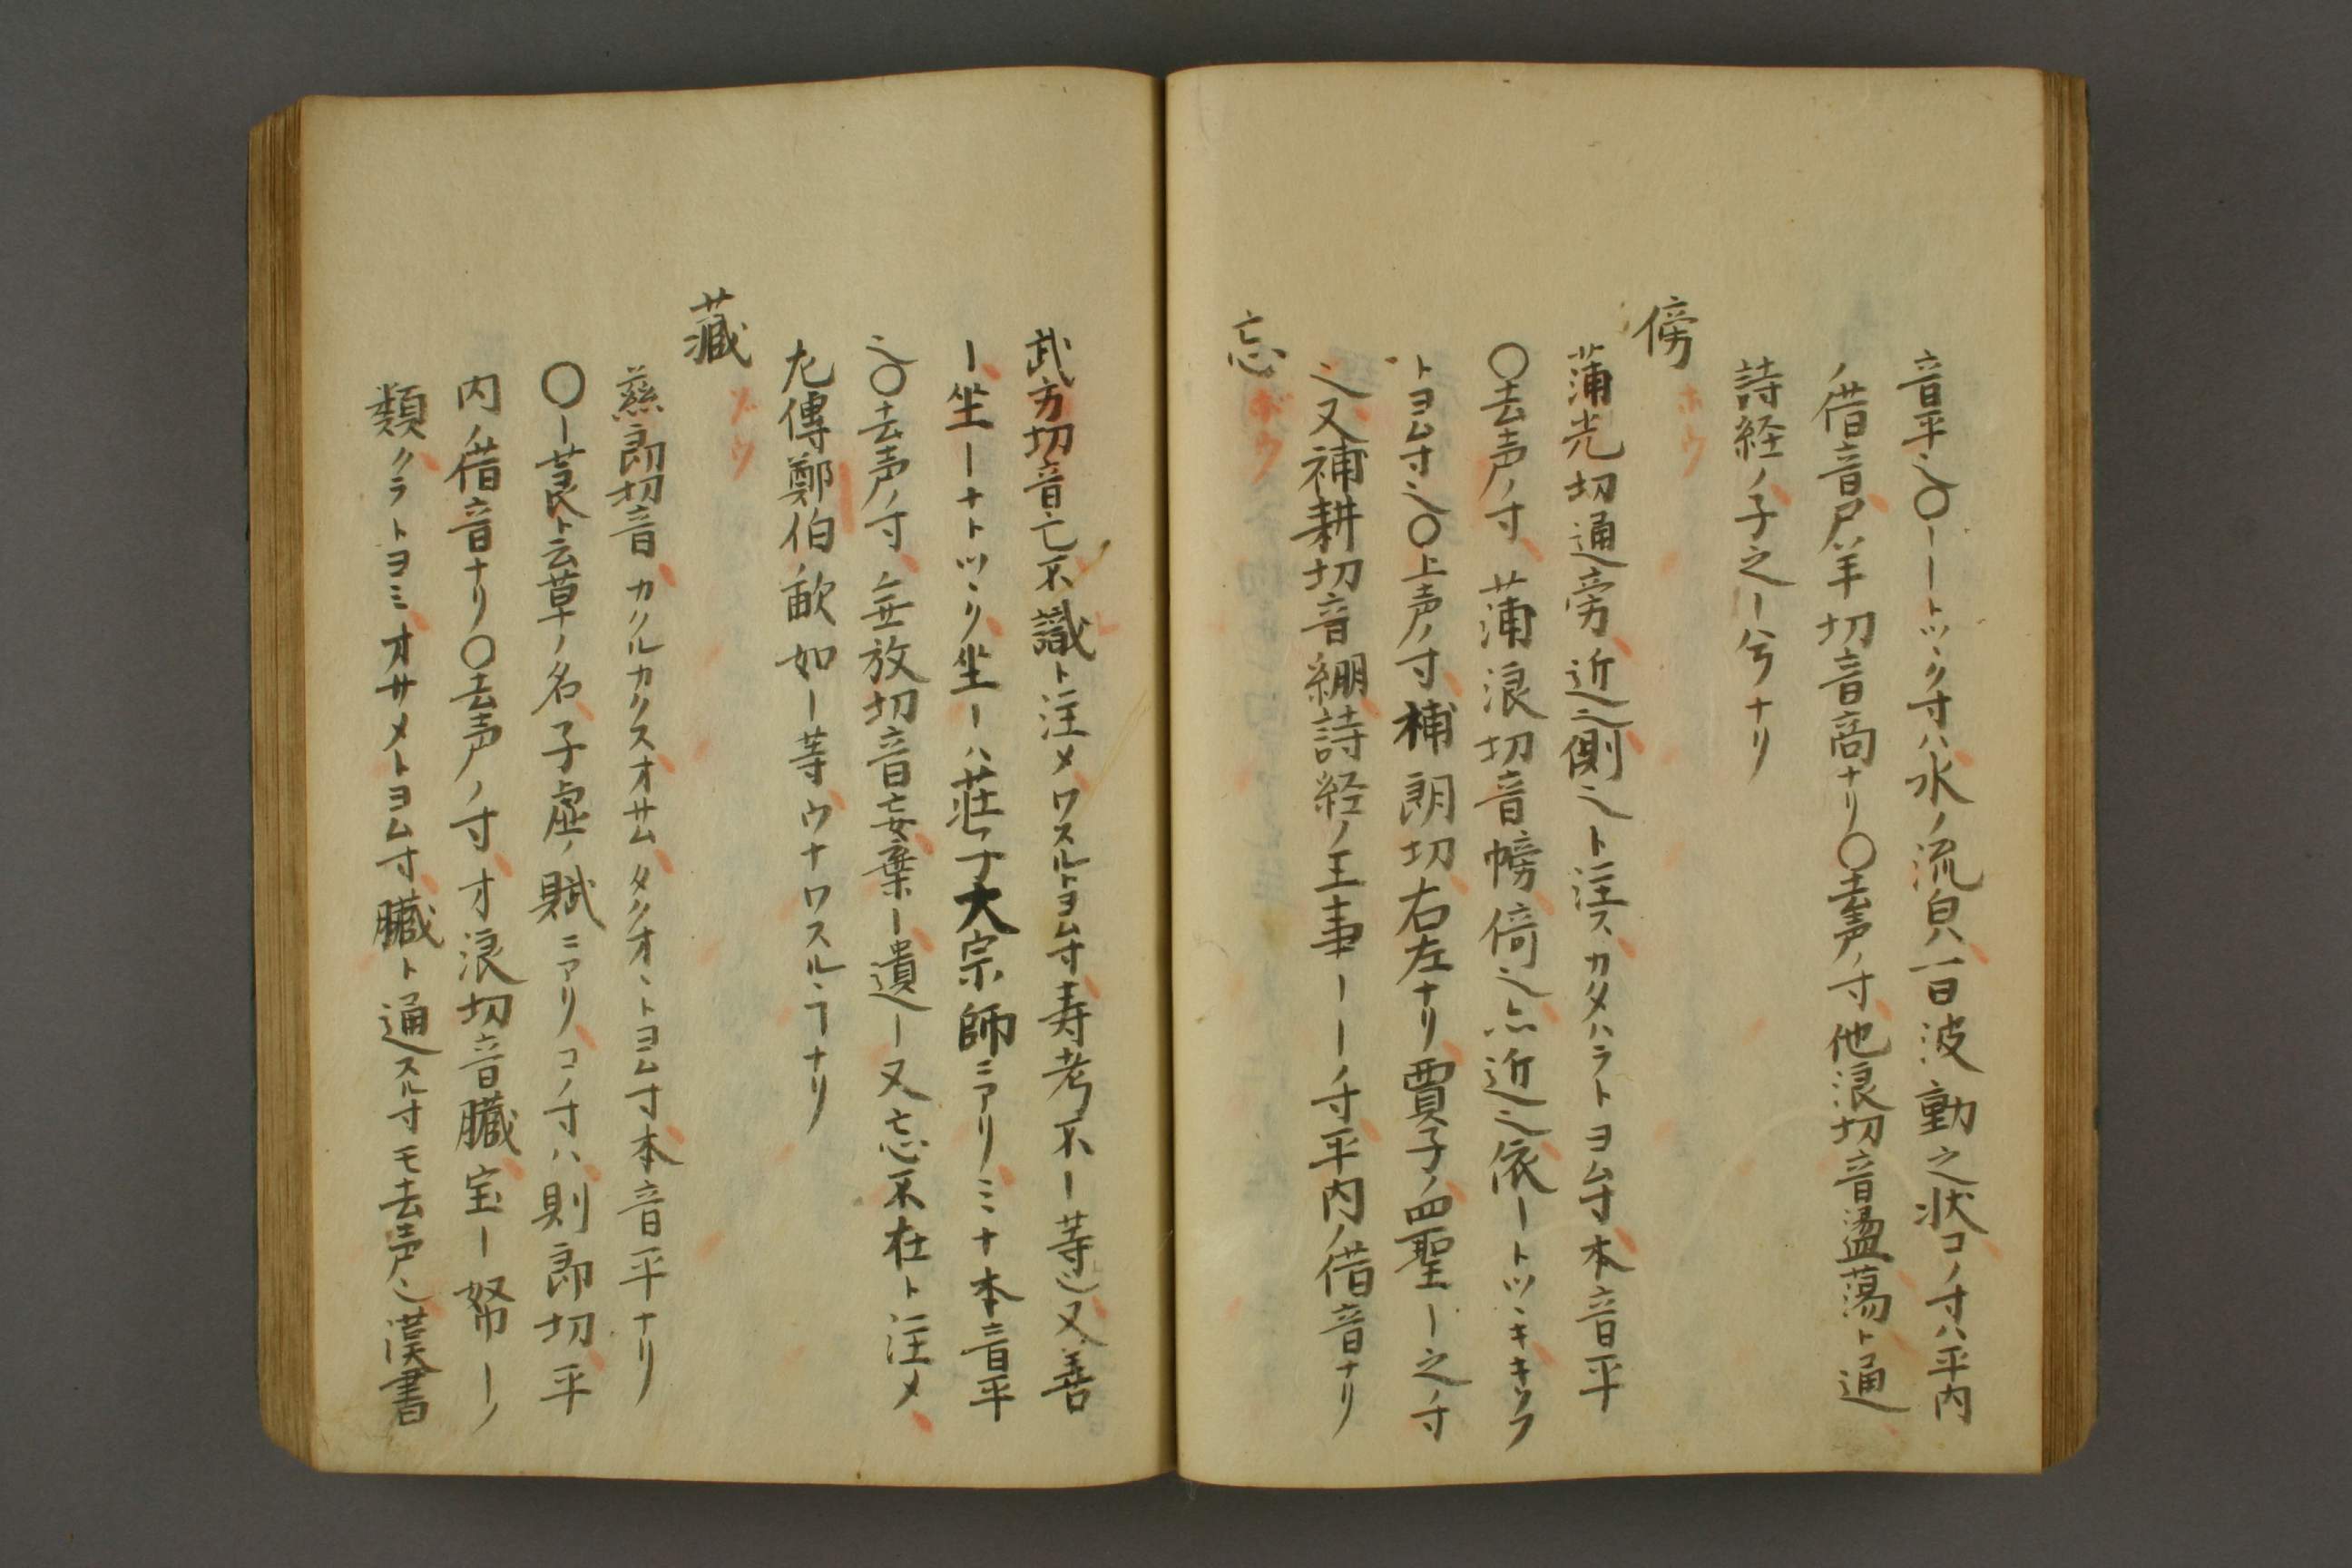 音平也〇ーートツヽク寸ハ水ノ流皃一曰波動之状コノ寸ハ平内
ノ借音尸羊切音商ナリ〇去声ノ寸他浪切音盪蕩ト通
詩経ノ子之ー兮ナリ
傍
ホウ
蒲光切通旁近也側也ト注スカタハラトヨム寸本音平
〇去声ノ寸蒲浪切音幚倚也亦近也依ートツヽキキソフ
トヨム寸也〇上声ノ寸補朗切右左ナリ賈子ノ四聖ー之ノ寸
也又補耕切音繃詩経ノ王事ーーノ寸平内ノ借音ナリ
忘
ボウ
武方切音亡不識ト注メワスルトヨム寸寿考不ー等也又善
ー坐ーナトツヽク坐ーハ荘子大宗師ニアリミナ本音平
也〇去声ノ寸無放切音妄棄ー遺ー又忘不在ト注メ
左傳鄭伯ノ歃如ー等ウナワスルヿナリ
藏
ゾウ
慈郎切音カクルカクスオサムタクオヽトヨム寸本音平ナリ
〇ー莨ト云草ノ名子虚ノ賦ニアリコノ寸ハ則郎切平
内ノ借音ナリ〇去声ノ寸才浪切音臓宝ー帑ーノ
類クラトヨミオサメトヨム寸臓ト通スル寸モ去声也漢書